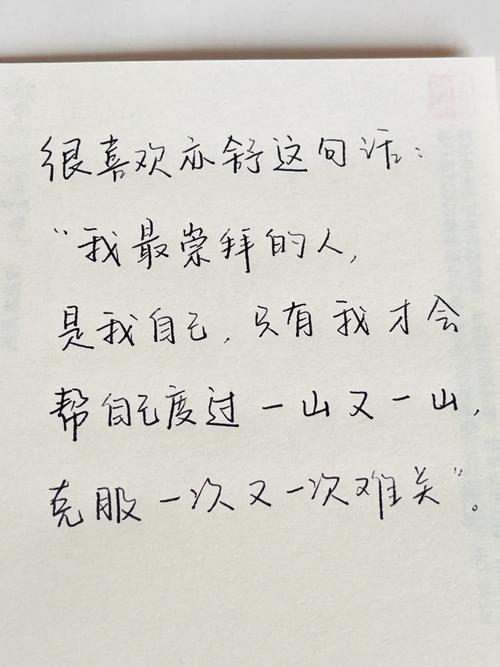 很喜欢亦舒这句话：
“我最崇拜的人，
是我自己，只有我才会
帮自己度过一山又一山，
克服一次又一次难关”。